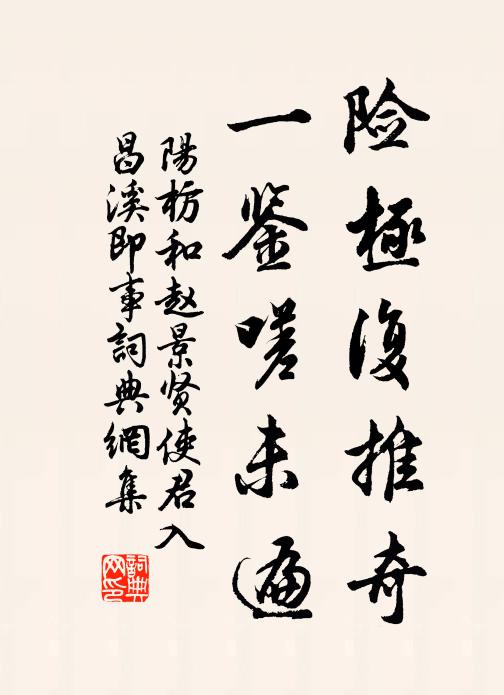 险極復推奇
一鉴嗟未遍
陽枋和赵景贤使君入
昌溪即事詞典網集
詞典
网印